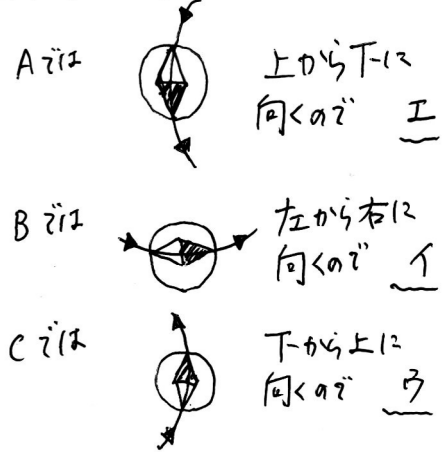 Aでは
上から下に
向くので エ
Bでは
左から右に
向くので イ
Cでは
下から上に
向くので ウ